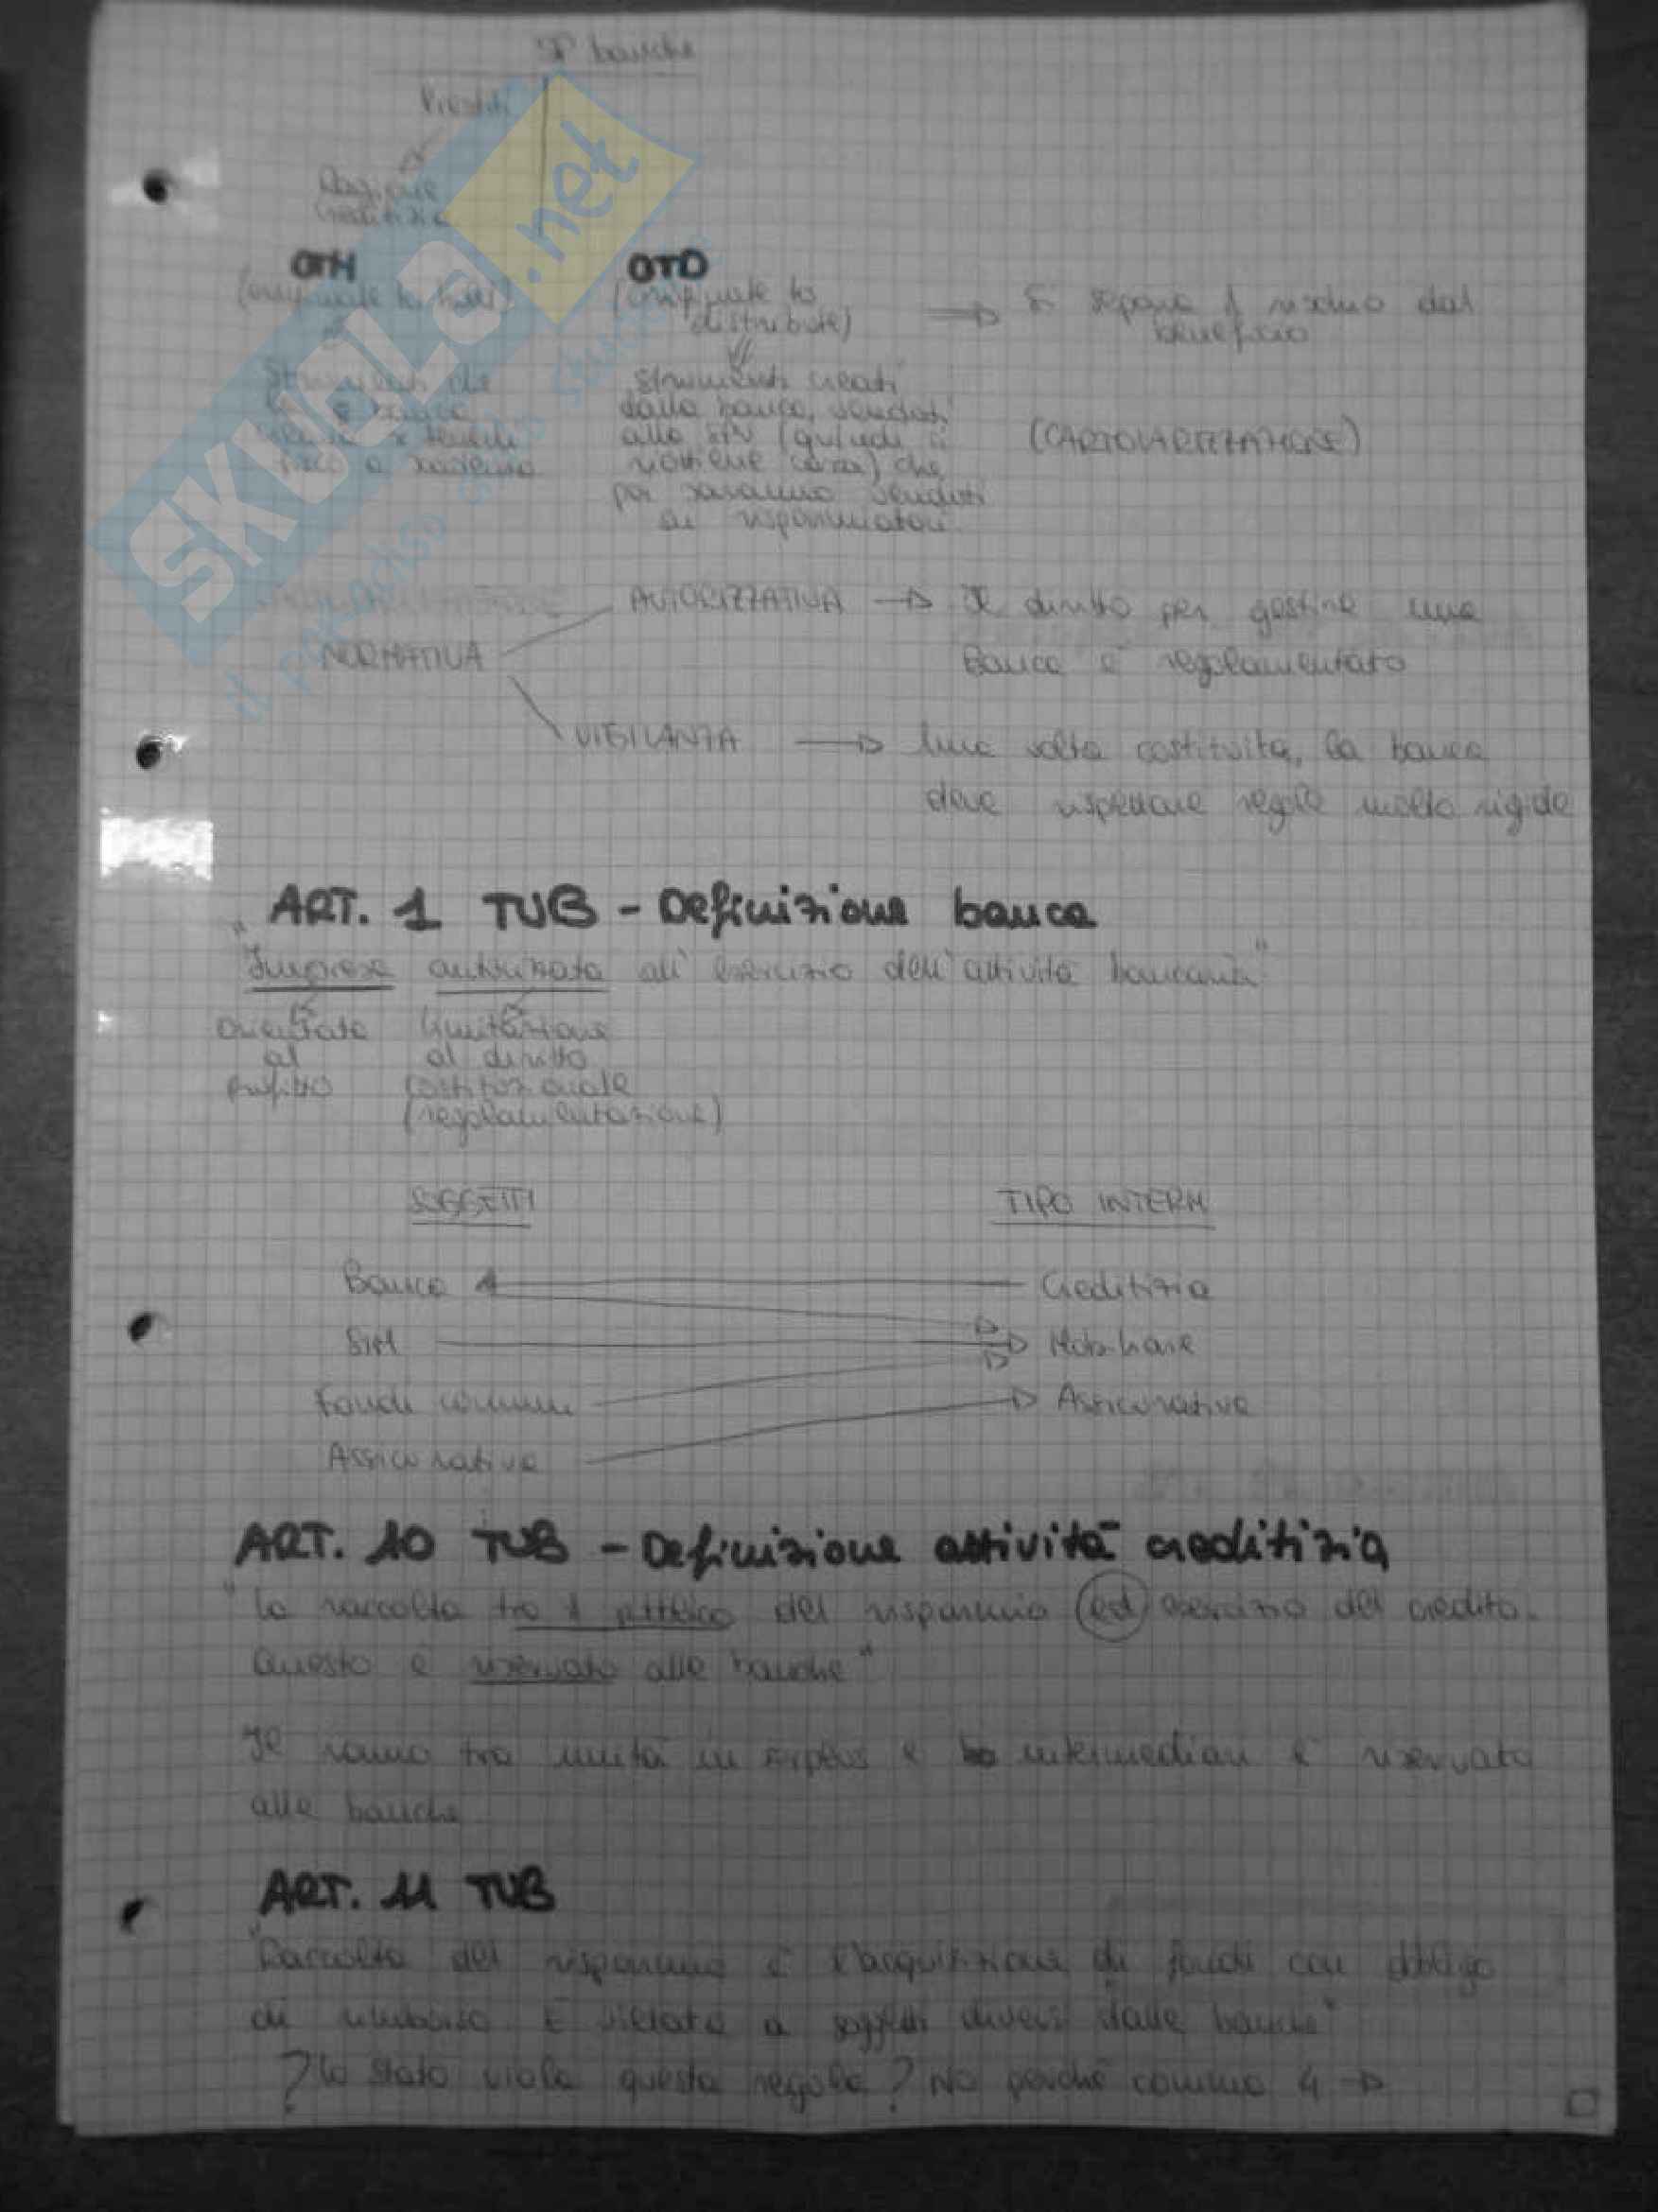 SP banche
Prestiti
Ragione
creditizia
OTH
OTD
(originate to hold)
(originate to
distribute)
Si separa il rischio dal
beneficio
Strumenti che
la banca
fino a scadenza
strumenti creati
dalla banca, venduti
alla SPV (quindi si
ottiene cassa) che
poi saranno venduti
ai risparmiatori.
(CARTOLARIZZAZIONE)
NORMATIVA
AUTORIZZATIVA → Il diritto per gestire una
Banca è regolamentato
VIGILANZA → Una volta costituita, la banca
deve rispettare regole molto rigide
ART. 1 TUB - Definizione banca
"Impresa autorizzata all'esercizio dell'attività bancaria"
orientata
al
profitto
limitazione
al diritto
costituzionale
(regolamentazione)
SOGGETTI
TIPO INTERM
Banca
Creditizia
SIM
Mobiliare
Fondi comuni
Assicurativa
Assicurativa
ART. 10 TUB - Definizione attività creditizia
"La raccolta tra il pubblico del risparmio ed esercizio del credito.
Questo è riservato alle banche"
Il ramo tra unità in surplus e intermediari è riservato
alle banche
ART. 11 TUB
"Raccolta del risparmio è l'acquisizione di fondi con obbligo
di rimborso. È vietata a soggetti diversi dalle banche"
? Lo Stato viola questa regola? No perché comma 4 →
SKUOLA.net
il paradiso dello studente